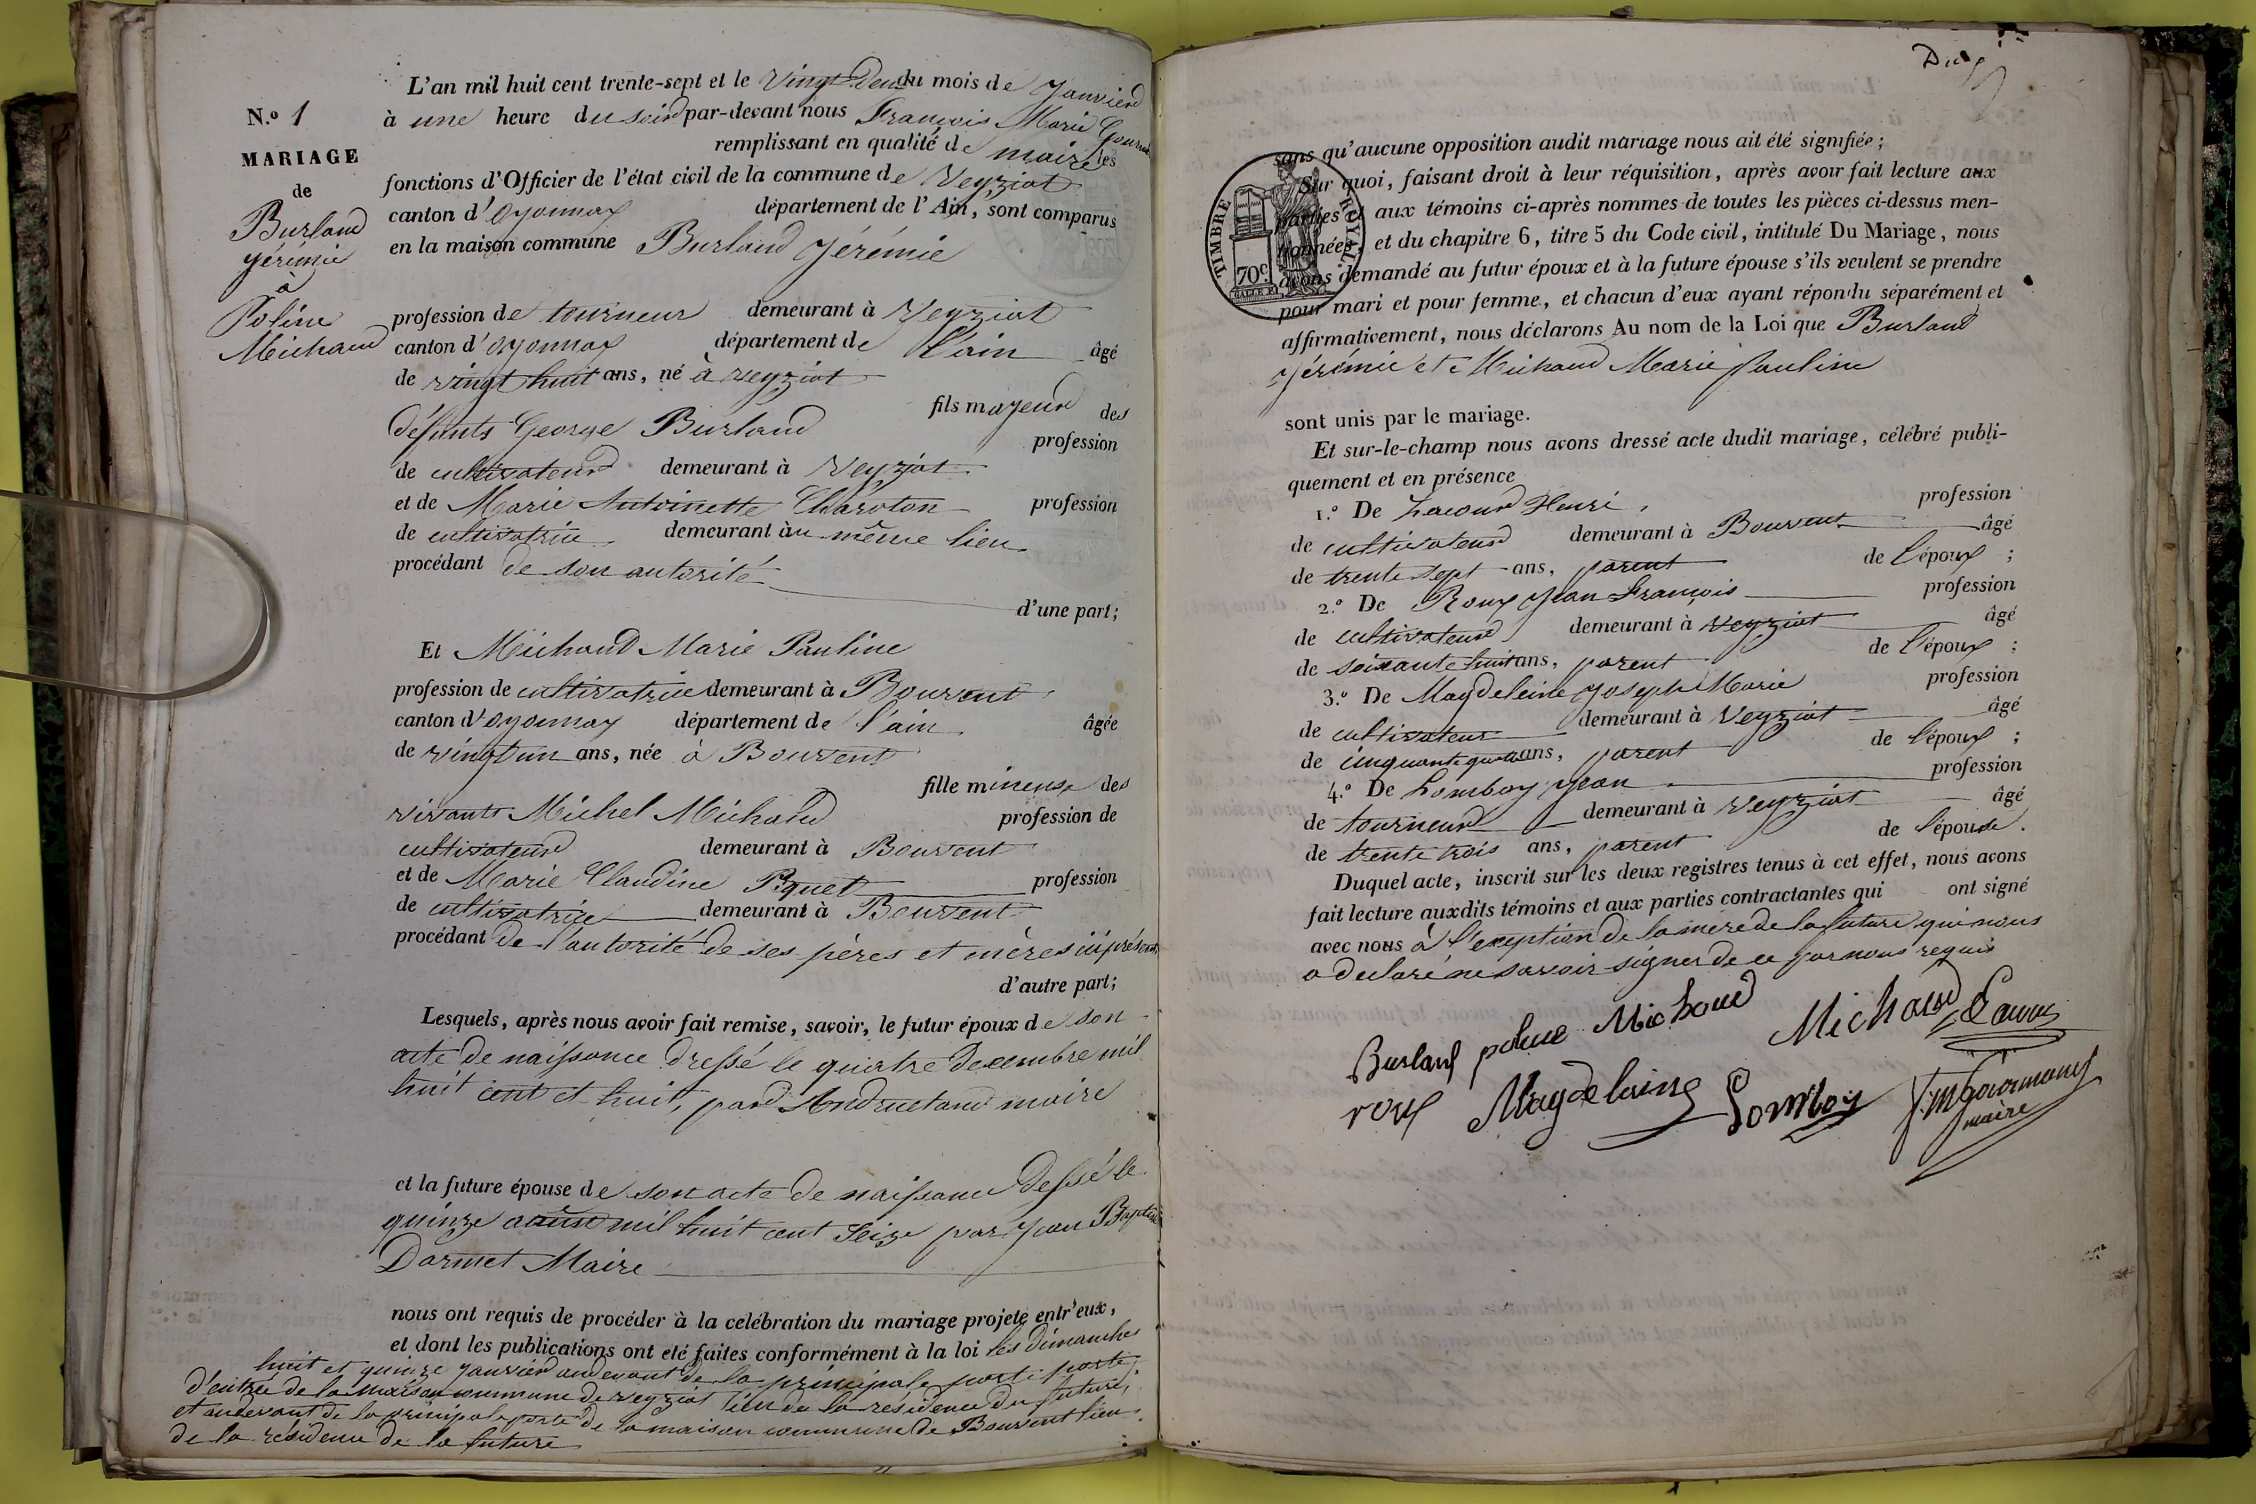 N.o 1
MARIAGE
de
Burland
Jérémie
à
Poline
Michaud
L'an mil huit cent trente-sept et le vingt deux du mois de Janvier
à une heure du soir par-devant nous François Marie
remplissant en qualité de maire les
fonctions d'Officier de l'état civil de la commune de Veyziat
canton d'Oyonnax département de l'Ain, sont comparus
en la maison commune Burland Jérémie
profession de tourneur demeurant à Veyziat
canton d'Oyonnax département de l'ain âgé
de vingt huit ans, né à Veyziat
fils majeur des
défunts George Burland profession
de cultivateur demeurant à Veyziat
et de Marie Antoinette Charoton profession
de cultivatrice demeurant au même lieu
procédant de son autorité
d'une part;
Et Michaud Marie Pauline
profession de cultivatrice demeurant à Bouvent
canton d'Oyonnax département de l'ain âgée
de vingt un ans, née à Bouvent
fille mineuse des
vivants Michel Michaud profession de
cultivateur demeurant à Bouvent
et de Marie Claudine Piquet profession
de cultivatrice demeurant à Bouvent
procédant de l'autorité de ses pères et mères ici présents
d'autre part;
Lesquels, après nous avoir fait remise, savoir, le futur époux de son
acte de naissance dressé le quatre Decembre mil
huit cent et huit, par maire
et la future épouse de son acte de naissance dressé le
quinze mil huit cent seize par Jean Baptiste
Darmet Maire
nous ont requis de procéder à la célébration du mariage projeté entr'eux,
et dont les publications ont été faites conformément à la loi les dimanches
huit et quinze Janvier au devant de la principale porte
d'entrée de la maison commune de Veyziat lieu de la résidence du futur,
et au devant de la principale porte de la maison commune de Bouvent lieu
de la résidence de la future
TIMBRE ROYAL
70c
sans qu'aucune opposition audit mariage nous ait été signifiée;
Sur quoi, faisant droit à leur réquisition, après avoir fait lecture aux
parties et aux témoins ci-après nommes de toutes les pièces ci-dessus men-
tionnées, et du chapitre 6, titre 5 du Code civil, intitulé Du Mariage, nous
avons demandé au futur époux et à la future épouse s'ils veulent se prendre
pour mari et pour femme, et chacun d'eux ayant répondu séparément et
affirmativement, nous déclarons Au nom de la Loi que Burland
Jérémie et Michaud Marie Pauline
sont unis par le mariage.
Et sur-le-champ nous avons dressé acte dudit mariage, célébré publi-
quement et en présence
1.o De Lacour Henri, profession
de cultivateur demeurant à Bouvent âgé
de trente sept ans, parent de l'époux ;
2.o De Roux Jean François profession
de cultivateur demeurant à Veyziat âgé
de soixante huit ans, parent de l'époux ;
3.o De Magdeleine Joseph Marie profession
de cultivateur demeurant à Veyziat âgé
de cinquante quatre ans, parent de l'époux ;
4.o De Lomboy Jean profession
de tourneur demeurant à Veyziat âgé
de trente trois ans, parent de l'épouse.
Duquel acte, inscrit sur les deux registres tenus à cet effet, nous avons
fait lecture auxdits témoins et aux parties contractantes qui ont signé
avec nous à l'exeption de la mère de la future qui nous
a declaré ne savoir signer de ce par nous requis
Burland poline Michaud Michaud
roux Magdelaine Lomboy
maire